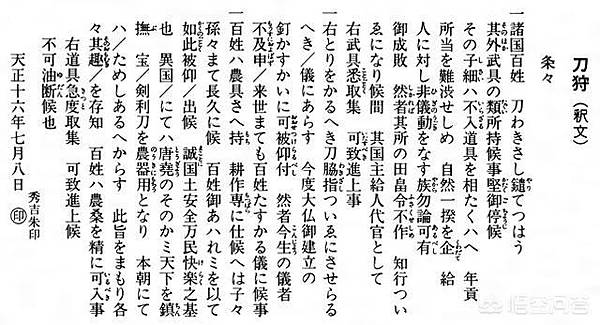 刀狩（釈文）
条々
一諸国百姓　刀わきさし鑓てつはう
其外武具の類所持候事堅御停候
その子細ハ不入道具を相たくハへ　年貢
所当を難渋せしめ　自然一揆を企　給
人に対し非儀動をなす族勿論可有
御成敗　然者其所の田畠令不作　知行つい
ゑになり候間　其国主給人代官として
右武具悉取集　可致進上事
一右とりをかるへき刀脇指ついゑにさせらる
へき/儀にあらす　今度大仏御建立の
釘かすかいに可被仰付　然者今生の儀者
不及申/来世まても百姓たすかる儀に候事
一百姓ハ農具さへ持　耕作専に仕候へは子々
孫々まて長久に候　百姓御あハれミを以て
如此被仰/出候　誠国土安全万民快楽之基
也　異国/にてハ唐堯のそのかミ天下を鎮
撫　宝/剣利刀を農器用となり　本朝にて
ハ/ためしあるへからす　此旨をまもり各
々其趣/を存知　百姓ハ農桑を精に可入事
右道具急度取集　可致進上候
不可油断候也
天正十六年七月八日
秀吉朱印
印
悟空问答